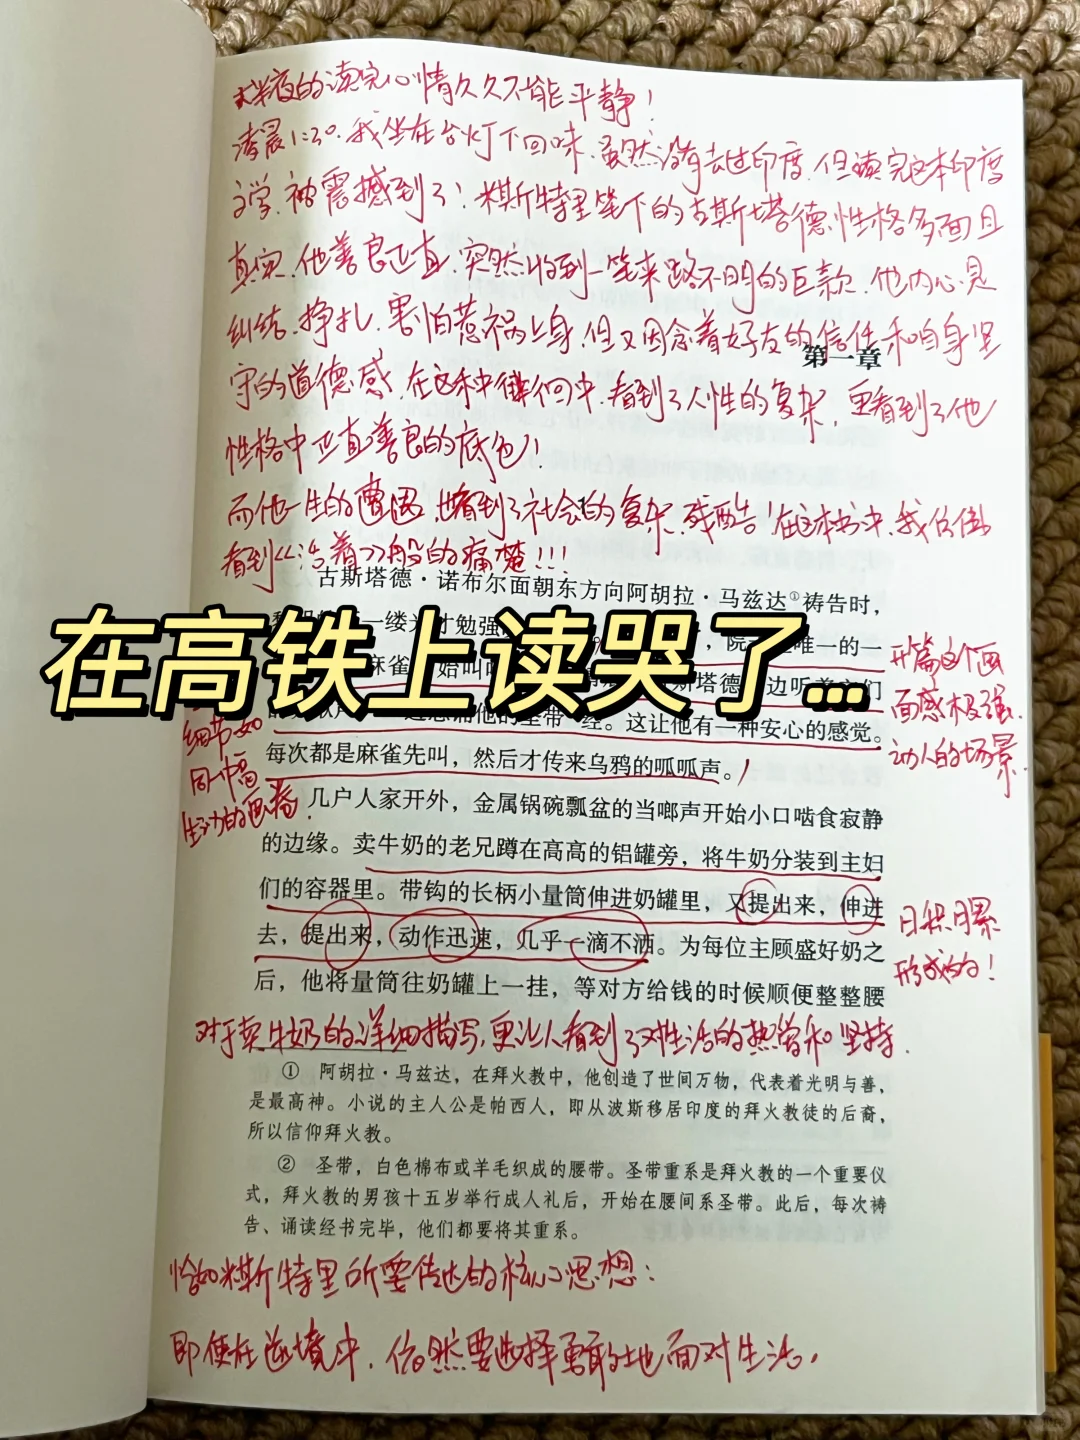 大半夜的读完心情久久不能平静!
凌晨1:30.我坐在台灯下回味.虽然没有去过印度.但读完这本印度
文学.被震撼到了!米斯特里笔下的古斯塔德.性格多面且
真实.他善良正直.突然收到一笔来路不明的巨款.他内心是
纠结.挣扎.害怕惹祸上身.但又因念着好友的信任和自身坚
第一章
守的道德感.在这种徘徊中.看到了人性的复杂,更看到了他
性格中正直善良的底色!
而他一生的遭遇.也看到了社会的复杂.残酷!在这本书中.我仿佛
看到《活着》般的痛楚!!!
古斯塔德·诺布尔面朝东方向阿胡拉·马兹达①祷告时,
一缕 才勉强 ,院 唯一的一
在高铁上读哭了...
麻雀 始叫 斯塔德 边听着 们
的圣带 经。这让他有一种安心的感觉。
每次都是麻雀先叫,然后才传来乌鸦的呱呱声。
开篇这个画
面感极强.
动人的场景.
细节如
同一幅
生动的画卷.
几户人家开外,金属锅碗瓢盆的当啷声开始小口啮食寂静
的边缘。卖牛奶的老兄蹲在高高的铝罐旁,将牛奶分装到主妇
们的容器里。带钩的长柄小量筒伸进奶罐里,又提出来,伸进
去,提出来,动作迅速,几乎一滴不洒。为每位主顾盛好奶之
后,他将量筒往奶罐上一挂,等对方给钱的时候顺便整整腰
日积月累
形成的!
对于卖牛奶的详细描写,更让人看到了对生活的热爱和坚持.
① 阿胡拉·马兹达,在拜火教中,他创造了世间万物,代表着光明与善,
是最高神。小说的主人公是帕西人,即从波斯移居印度的拜火教徒的后裔,
所以信仰拜火教。
② 圣带,白色棉布或羊毛织成的腰带。圣带重系是拜火教的一个重要仪
式,拜火教的男孩十五岁举行成人礼后,开始在腰间系圣带。此后,每次祷
告、诵读经书完毕,他们都要将其重系。
恰如米斯特里所要传达的核心思想:
即便在逆境中,依然要选择勇敢的地面对生活,